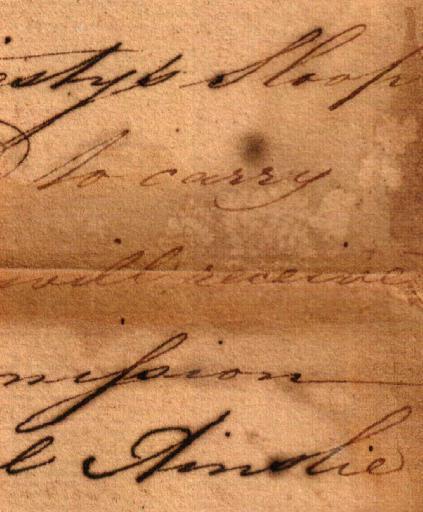 estys Sloop
to carry
will receive
mission
Ainslie